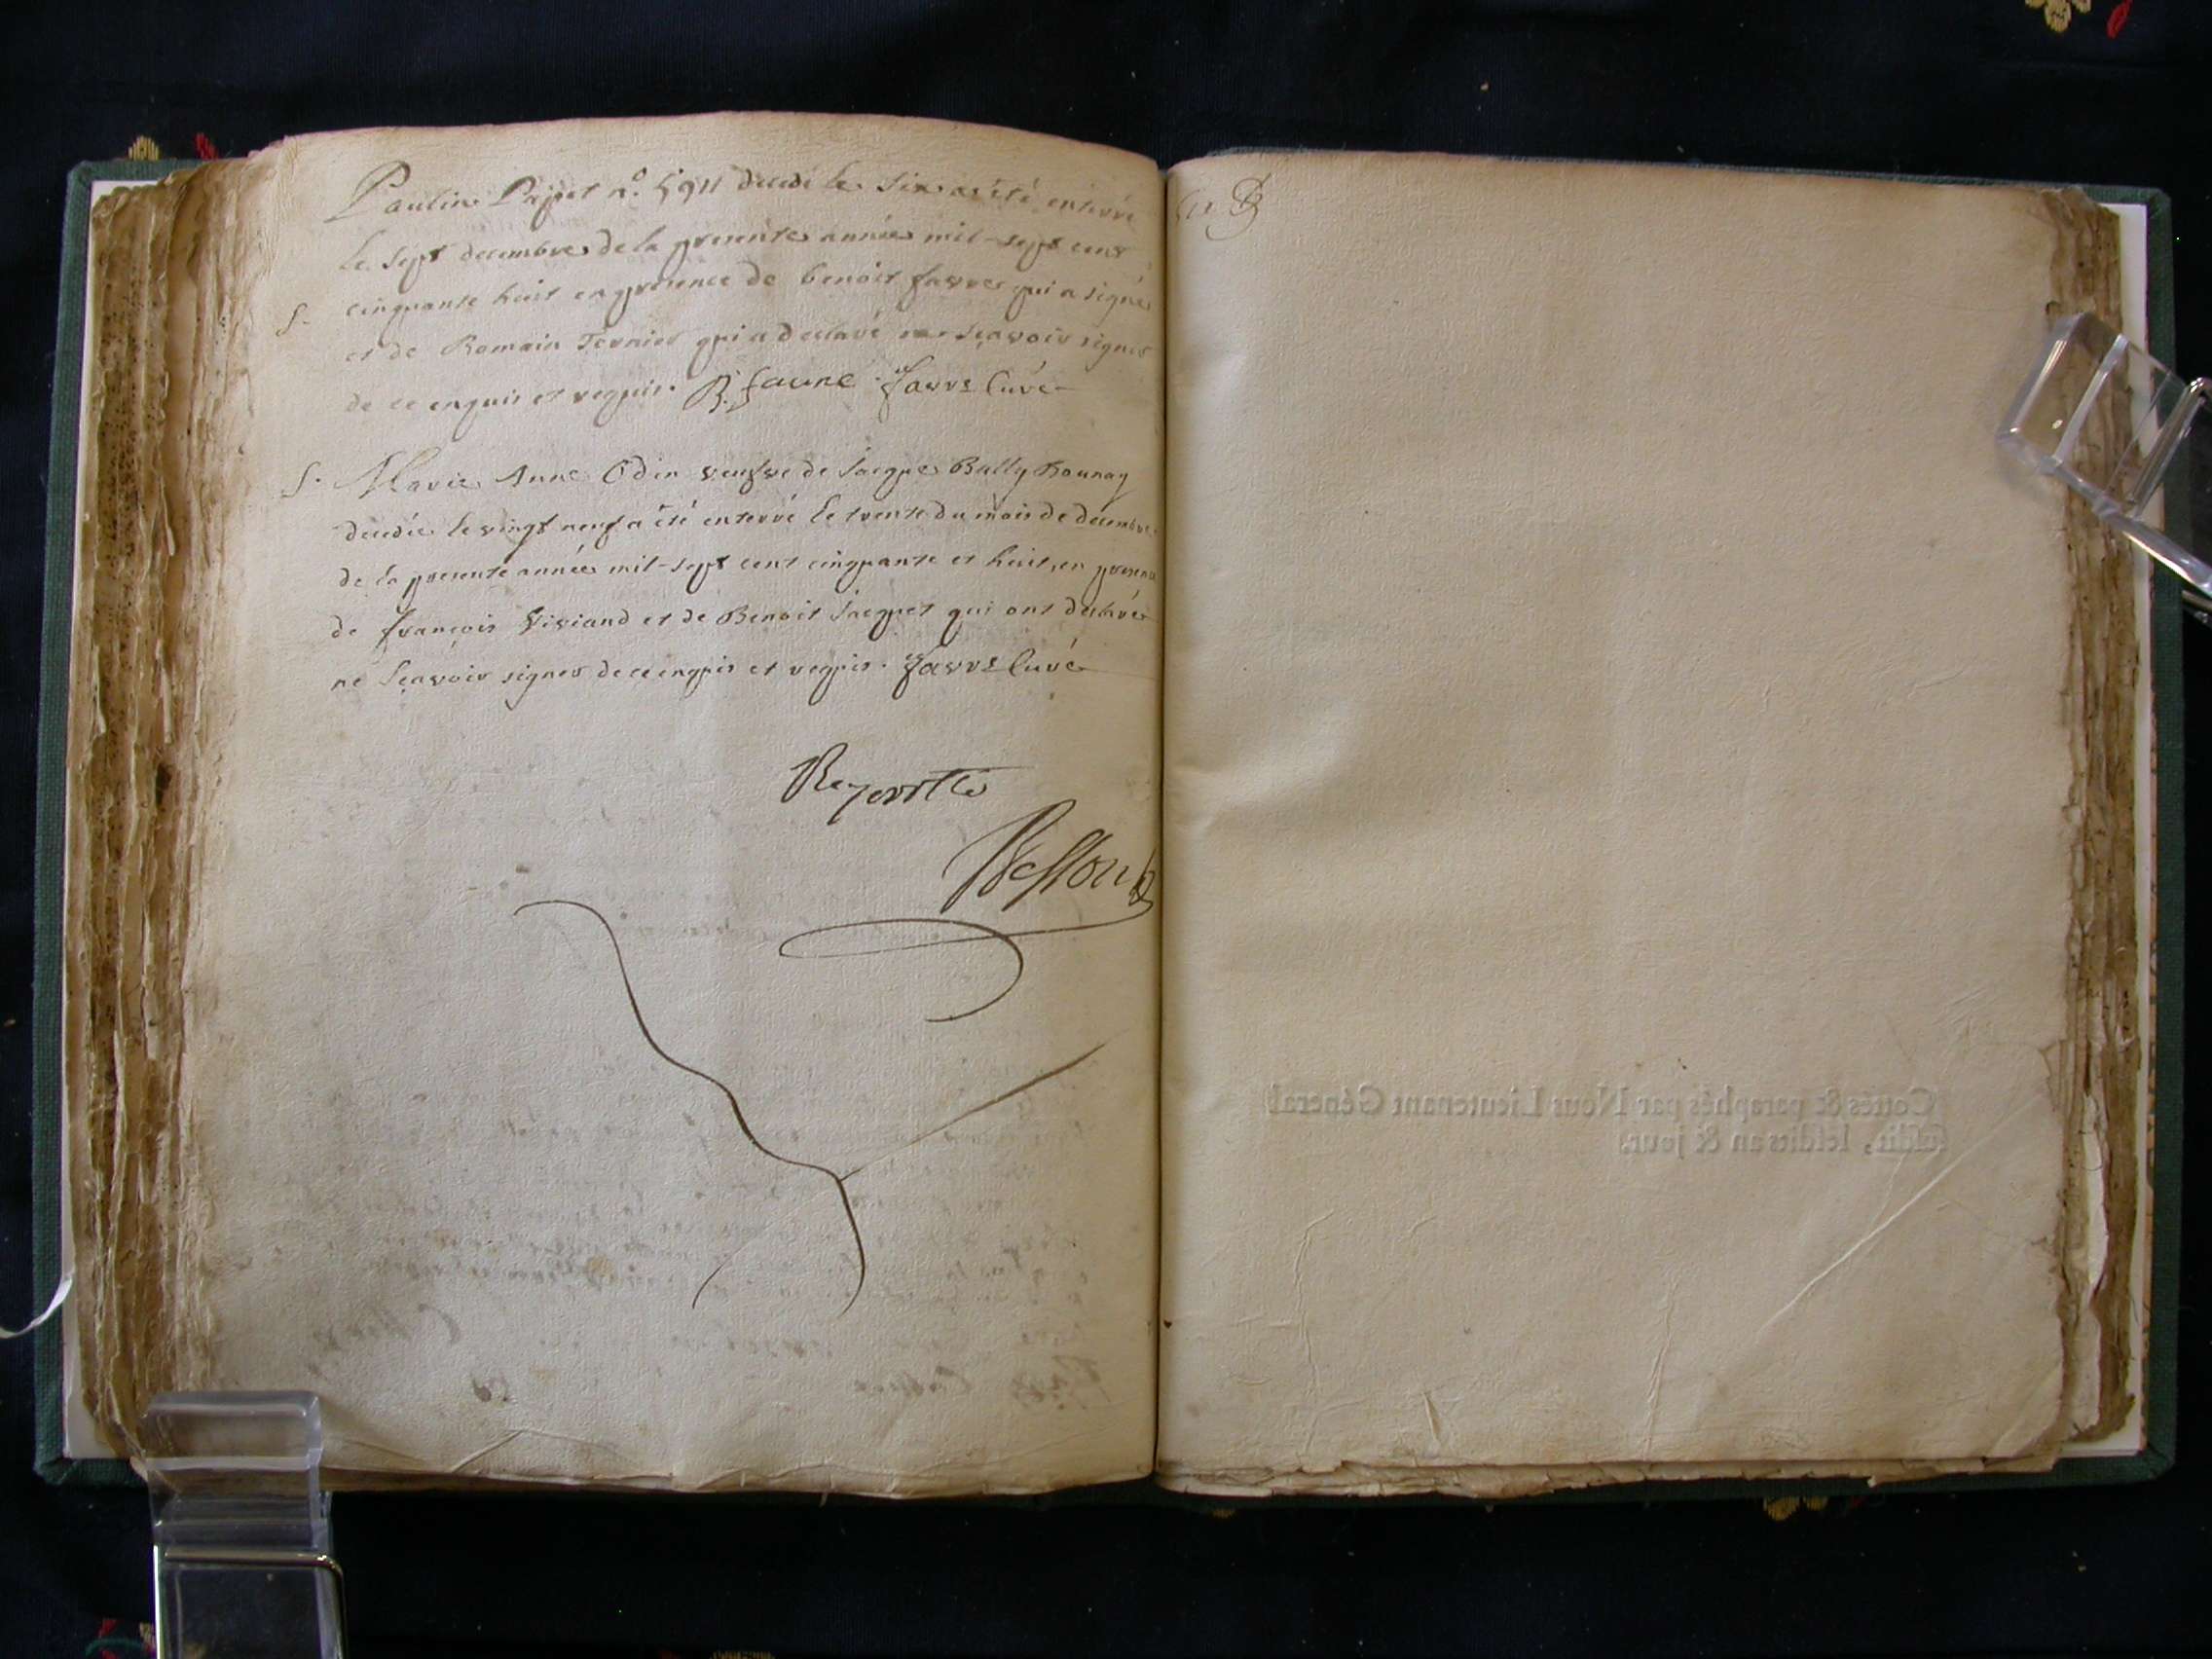 Paulin Pajet nº. 5911 decedé le six a été enterré
le sept decembre de la presente année mil-sept cent
S. cinquante huit en presence de benoit favre qui a signé
et de Romain Ternier qui a declaré ne sçavoir signer
de ce enquis et requis. B. faure favre Curé
S. Marie Anne Odin veufve de Jacque Bully
decedée le vingt neuf a été enterré le trente du mois de decembre
de la presente année mil-sept cent cinquante et huit, en presence
de françois Viviand et de Benoit Jacquet qui ont declaré
ne sçavoir signer de ce enquis et requis. favre Curé
Besson
Cottés & paraphés par Nous Lieutenant Général
susdit, lesdits an & jour.